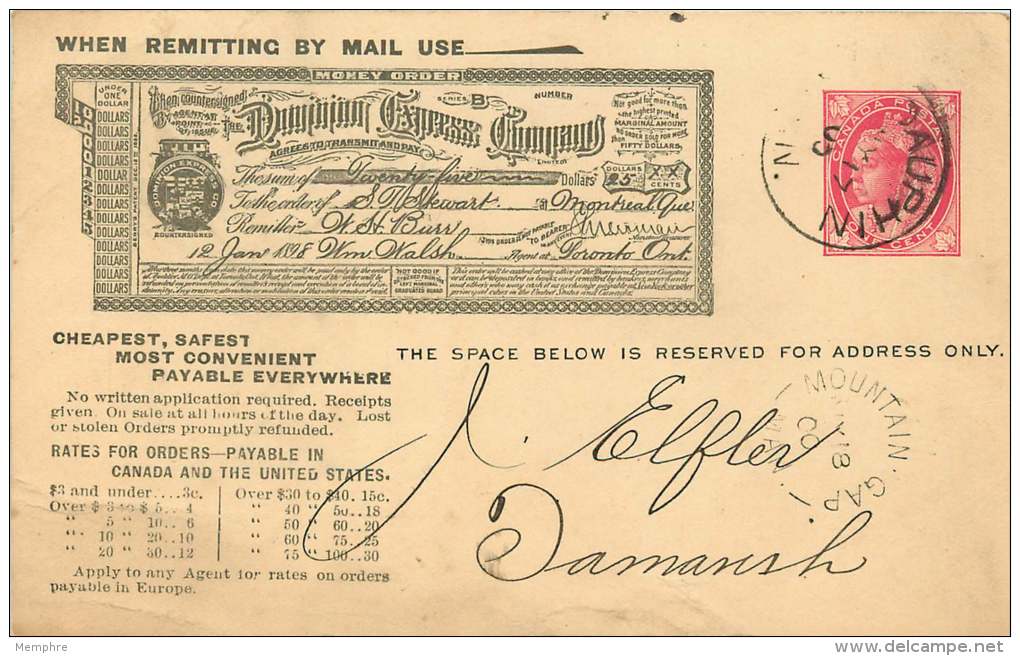 WHEN REMITTING BY MAIL USE
MONEY ORDER
When countersigned
BY AGENT AT
POINT
OF ISSUE
THE Dominion Express Company
LIMITED
SERIES B NUMBER
Not good for more than
the highest printed
MARGINAL AMOUNT
NO ORDER SOLD FOR MORE
THAN
FIFTY DOLLARS
AGREES TO TRANSMIT AND PAY
The sum of Twenty-five Dollars
DOLLARS CENTS
25 XX
To the order of S. T. Stewart at Montreal Que
Remitter W. H. Burr
12 Jan 1898 Wm. Walsh Agent at Toronto Ont.
UNDER
ONE
DOLLAR
DOLLARS
DOLLARS
DOLLARS
DOLLARS
DOLLARS
DOLLARS
DOLLARS
DOLLARS
DOLLARS
DOLLARS
DOLLARS
DOLLARS
DOMINION EXPRESS CO
COUNTERSIGNED
CANADA POSTAGE
CENT
DAUPHIN
CHEAPEST, SAFEST
MOST CONVENIENT
PAYABLE EVERYWHERE
No written application required. Receipts
given. On sale at all hours of the day. Lost
or stolen Orders promptly refunded.
RATES FOR ORDERS—PAYABLE IN
CANADA AND THE UNITED STATES.
$3 and under....3c. Over $30 to $40. 15c.
Over $ 3 to $ 5.. 4 " 40 " 50..18
" 5 " 10.. 6 " 50 " 60..20
" 10 " 20..10 " 60 " 75..25
" 20 " 30..12 " 75 " 100..30
Apply to any Agent for rates on orders
payable in Europe.
THE SPACE BELOW IS RESERVED FOR ADDRESS ONLY.
MOUNTAIN GAP
MAN
MY 18
00
J. Elfler
Tamarish
Memphre
www.delcampe.net